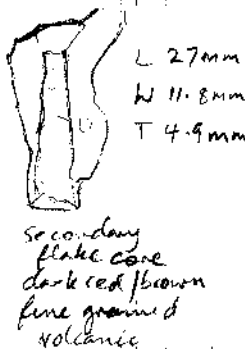 L 27mm
W 11.8mm
T 4.9mm
secondary
flake core
dark red/brown
fine grained
volcanic